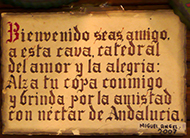 Bienvenido seas, amigo,
a esta cava, catedral
del amor y la alegría:
Alza tu copa conmigo
y brinda por la amistad
con néctar de Andalucía.
MIGUEL ANGEL
2007